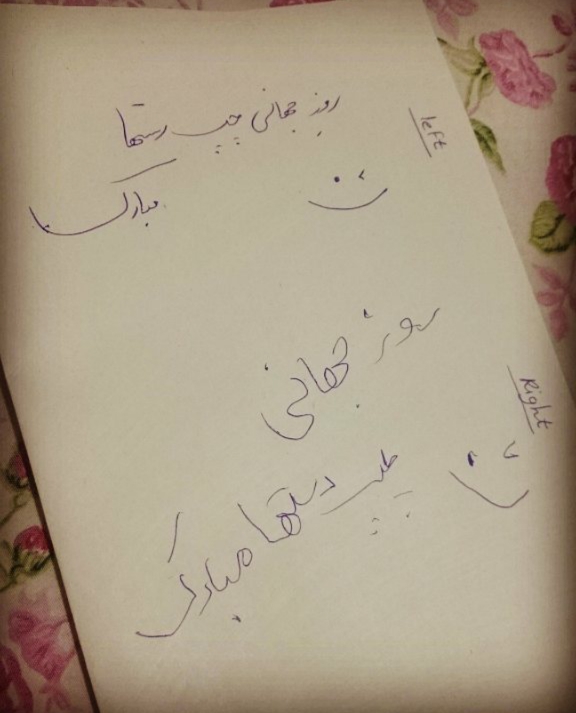 left
روز جهانی چپ دستها
مبارک
Right
روز جهانی
چپ دستها مبارک